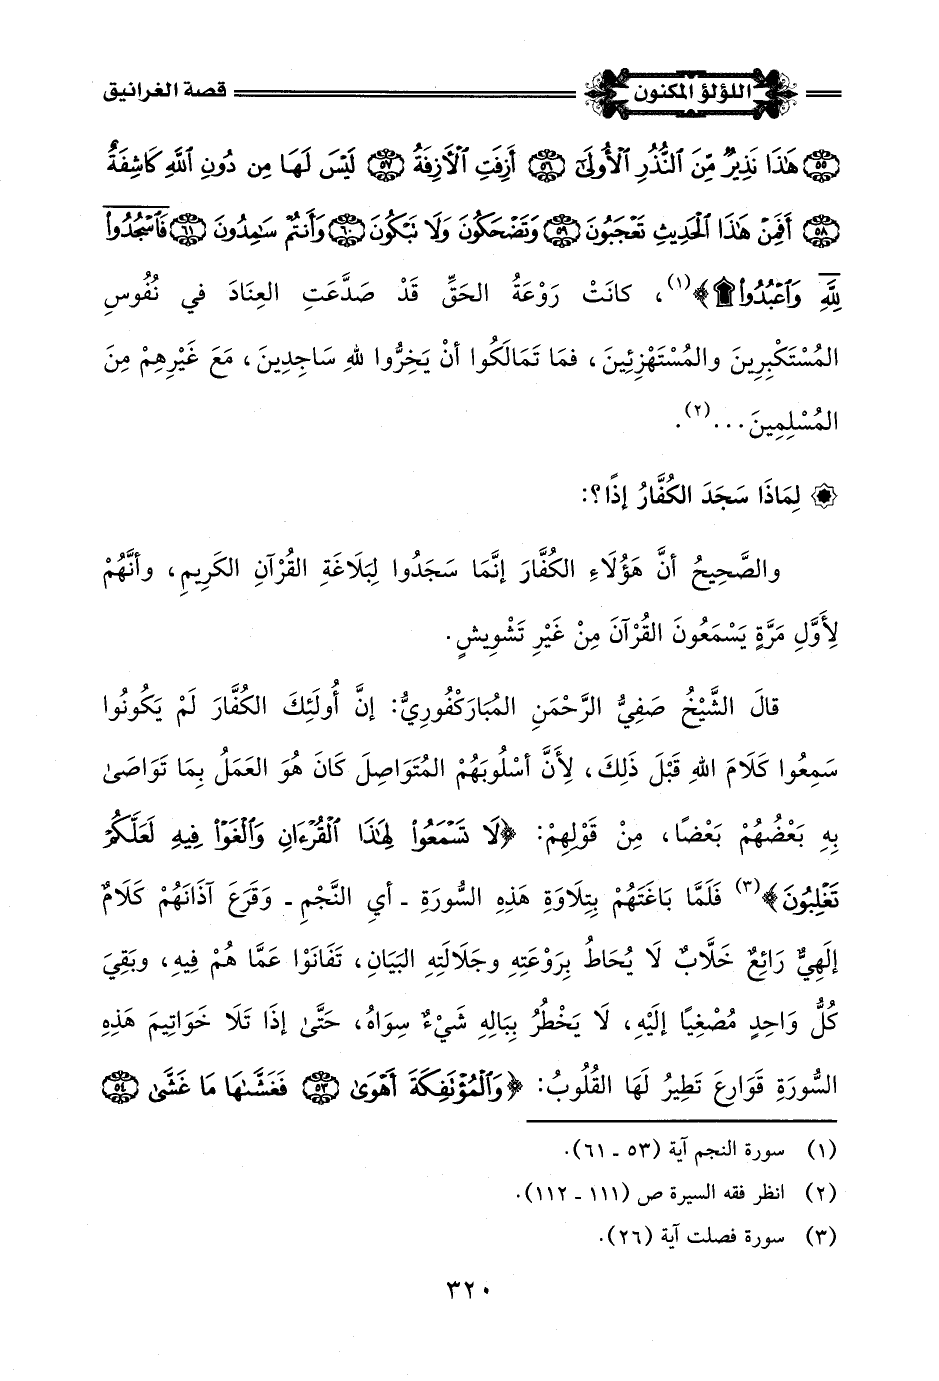 اللؤلؤ المكنون قصة الغرانيق
﴿٥٥﴾ هَٰذَا نَذِيرٌ مِّنَ ٱلنُّذُرِ ٱلْأُولَىٰٓ ﴿٥٦﴾ أَزِفَتِ ٱلْآزِفَةُ ﴿٥٧﴾ لَيْسَ لَهَا مِن دُونِ ٱللَّهِ كَاشِفَةٌ
﴿٥٨﴾ أَفَمِنْ هَٰذَا ٱلْحَدِيثِ تَعْجَبُونَ ﴿٥٩﴾ وَتَضْحَكُونَ وَلَا تَبْكُونَ ﴿٦٠﴾ وَأَنتُمْ سَٰمِدُونَ ﴿٦١﴾ فَٱسْجُدُوا۟
لِلَّهِ وَٱعْبُدُوا۟ ۩﴾(١)، كانَتْ رَوْعَةُ الحَقِّ قَدْ صَدَّعَتِ العِنَادَ في نُفُوسِ
المُسْتَكْبِرِينَ والمُسْتَهْزِئِينَ، فمَا تَمَالَكُوا أنْ يَخِرُّوا للهِ ساجِدِينَ، مَعَ غَيْرِهِمْ مِنَ
المُسْلِمِينَ...(٢).
لِمَاذَا سَجَدَ الكُفَّارُ إذًا؟:
والصَّحِيحُ أنَّ هَؤُلَاءِ الكُفَّارَ إنَّمَا سَجَدُوا لِبَلَاغَةِ القُرْآنِ الكَرِيمِ، وأنَّهُمْ
لِأَوَّلِ مَرَّةٍ يَسْمَعُونَ القُرْآنَ مِنْ غَيْرِ تَشْوِيشٍ.
قالَ الشَّيْخُ صَفِيُّ الرَّحْمَنِ المُبَارَكْفُورِيُّ: إنَّ أُولَئِكَ الكُفَّارَ لَمْ يَكُونُوا
سَمِعُوا كَلَامَ اللهِ قَبْلَ ذَلِكَ، لِأَنَّ أسْلُوبَهُمْ المُتَوَاصِلَ كَانَ هُوَ العَمَلُ بِمَا تَوَاصَىٰ
بِهِ بَعْضُهُمْ بَعْضًا، مِنْ قَوْلِهِمْ: ﴿لَا تَسْمَعُوا۟ لِهَٰذَا ٱلْقُرْءَانِ وَٱلْغَوْا۟ فِيهِ لَعَلَّكُمْ
تَغْلِبُونَ﴾(٣) فَلَمَّا بَاغَتَهُمْ بِتِلَاوَةِ هَذِهِ السُّورَةِ - أيِ النَّجْمِ - وَقَرَعَ آذَانَهُمْ كَلَامٌ
إلَهِيٌّ رَائِعٌ خَلَّابٌ لَا يُحَاطُ بِرَوْعَتِهِ وجَلَالَتِهِ البَيَانِ، تَفَانَوْا عَمَّا هُمْ فِيهِ، وبَقِيَ
كُلُّ وَاحِدٍ مُصْغِيًا إلَيْهِ، لَا يَخْطُرُ بِبَالِهِ شَيْءٌ سِوَاهُ، حَتَّىٰ إذَا تَلَا خَوَاتِيمَ هَذِهِ
السُّورَةِ قَوَارِعَ تَطِيرُ لَهَا القُلُوبُ: ﴿وَٱلْمُؤْتَفِكَةَ أَهْوَىٰ ﴿٥٣﴾ فَغَشَّىٰهَا مَا غَشَّىٰ ﴿٥٤﴾
(١) سورة النجم آية (٥٣ - ٦١).
(٢) انظر فقه السيرة ص (١١١ - ١١٢).
(٣) سورة فصلت آية (٢٦).
٣٢٠